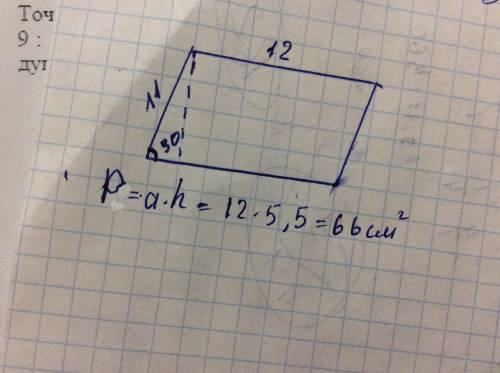 Точ
9 :
дуг
12
11
30
P = a·h = 12·5,5 = 66см²